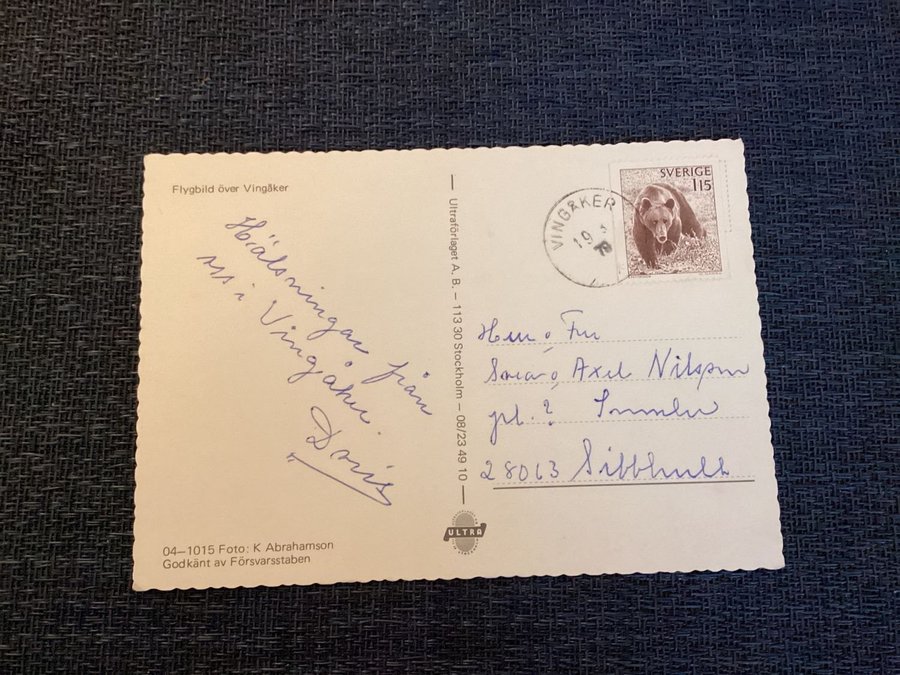 Flygbild över Vingåker
Hälsningar från
oss i Vingåker.
Doris
04—1015 Foto: K Abrahamson
Godkänt av Försvarsstaben
Ultraförlaget A. B. — 113 30 Stockholm — 08/23 49 10
ULTRA
VINGÅKER
SVERIGE
115
Herr o Fru
Axel Nilsson
pl. 2
28013 Sibbhult